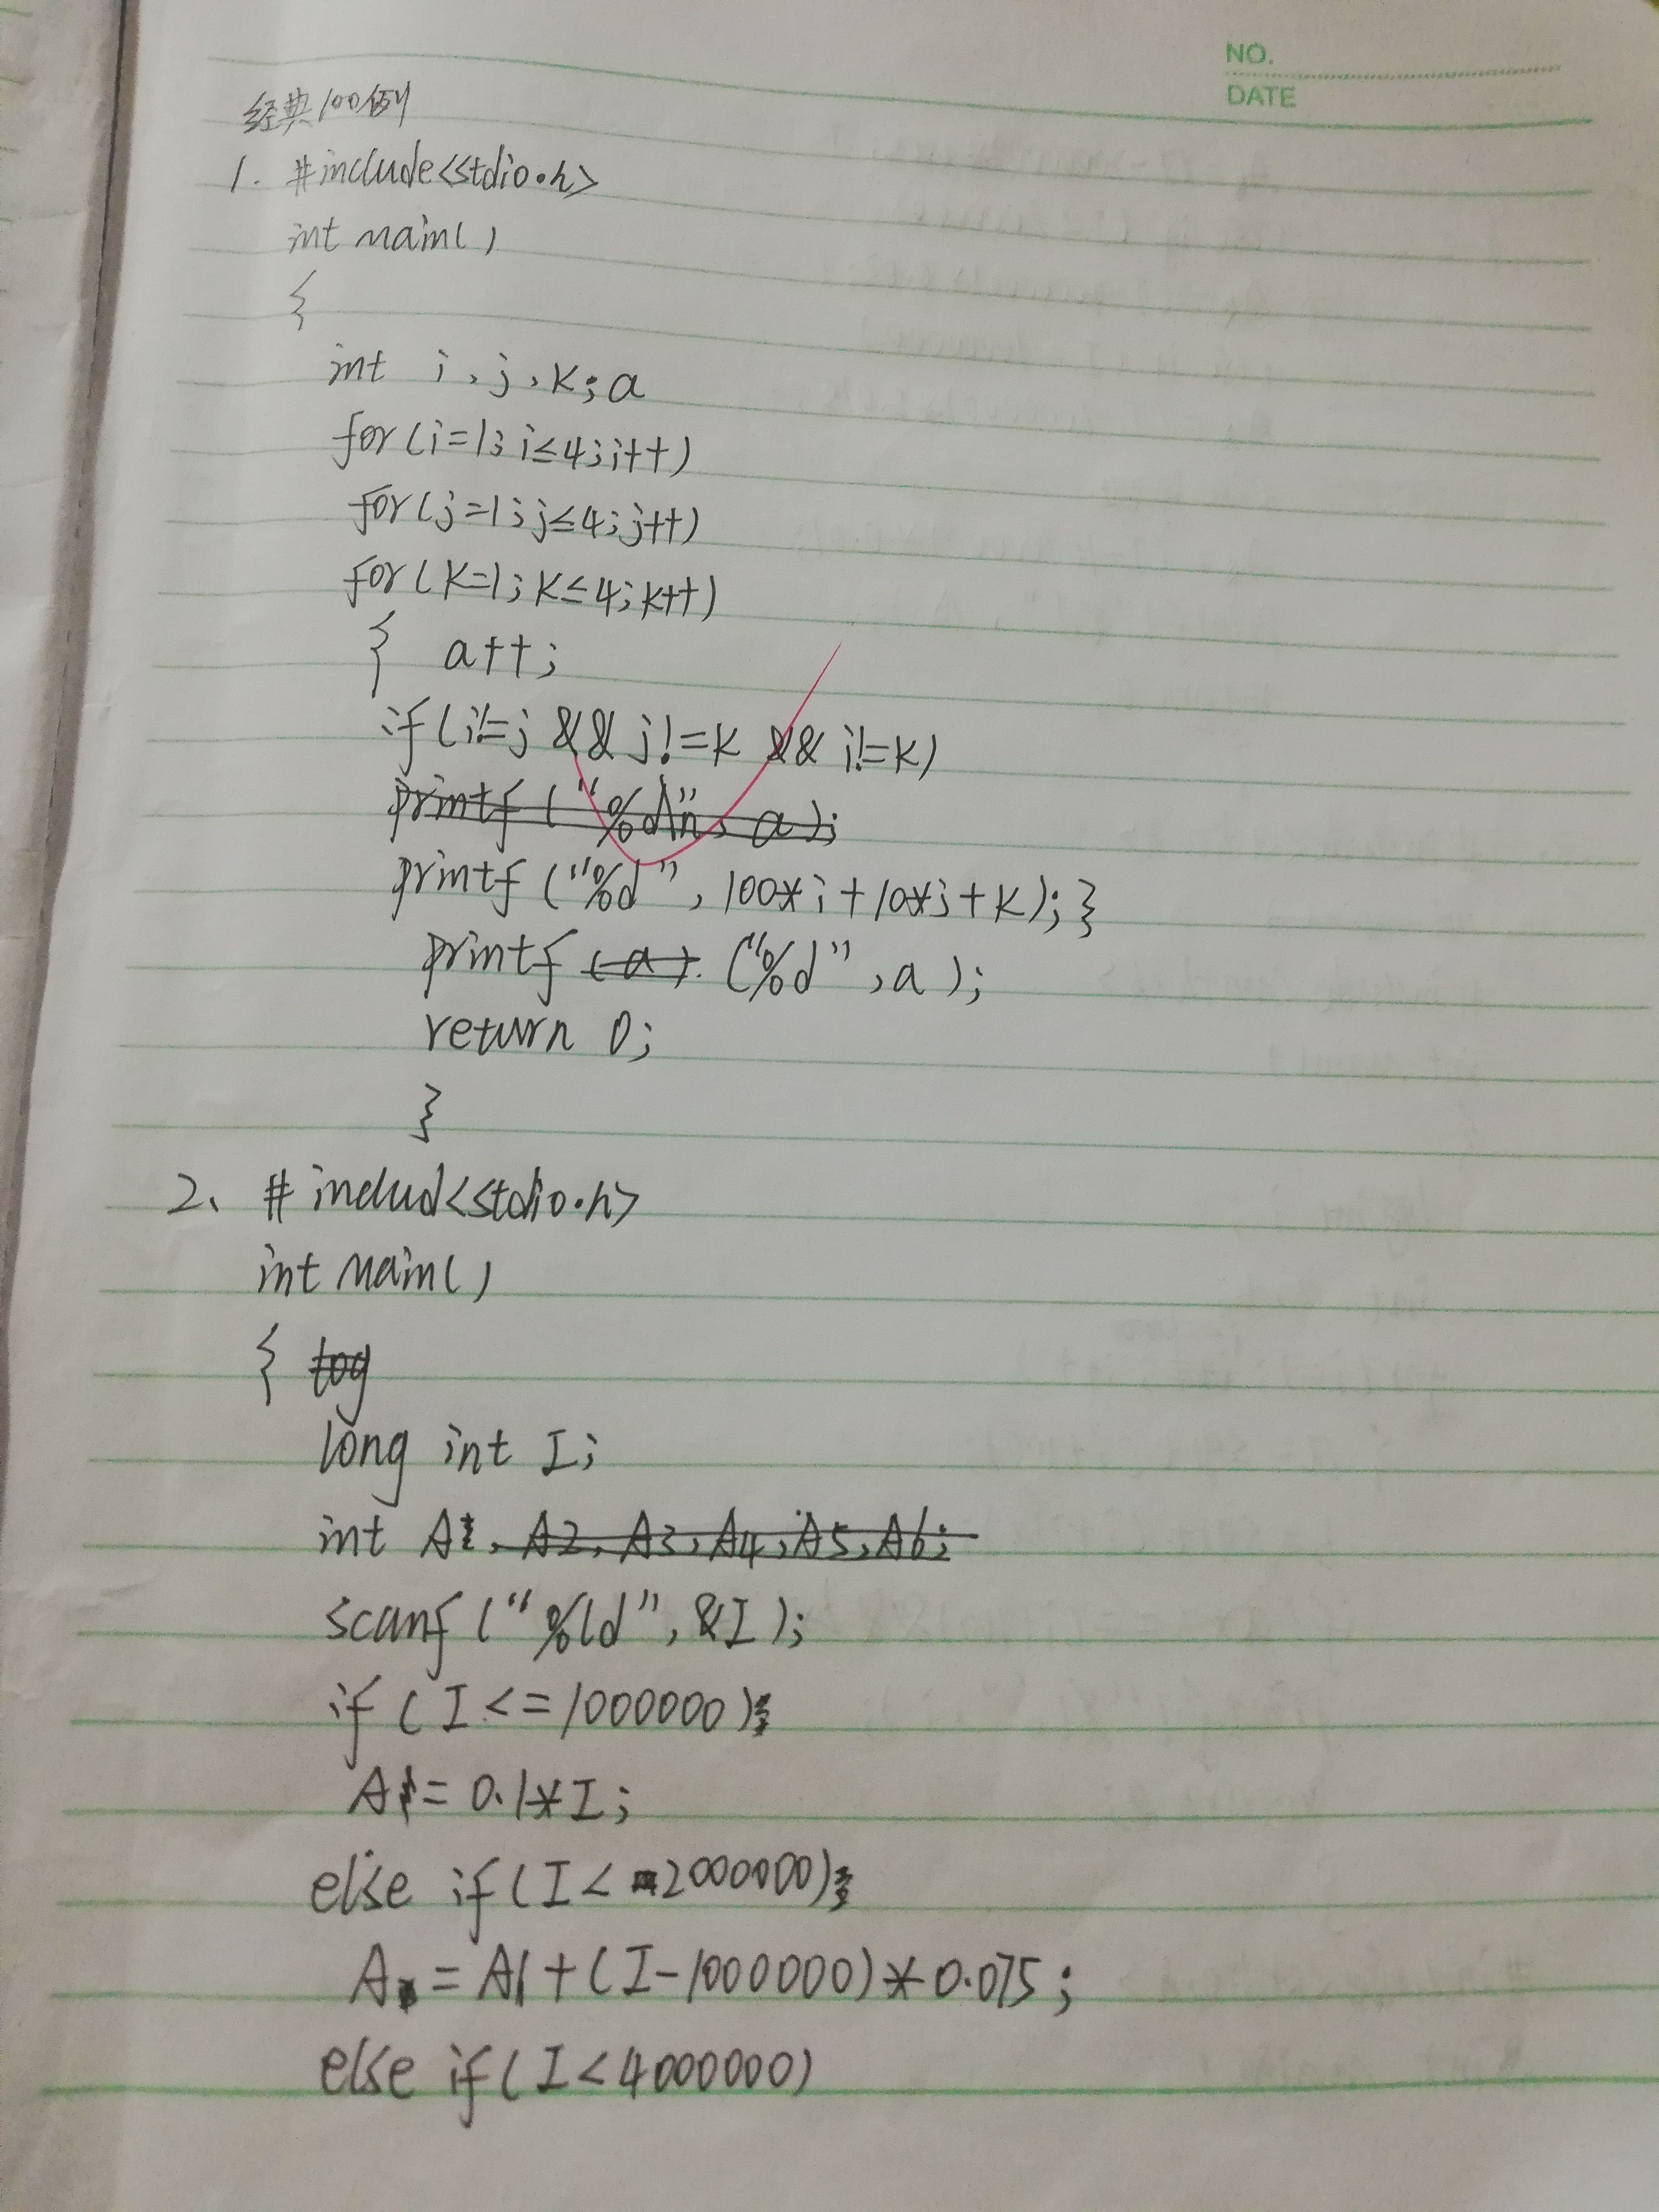 NO.
DATE
经典100例
1. #include<stdio.h>
int main()
{
int i,j,k;a
for(i=1;i≤4;i++)
for(j=1;j≤4;j++)
for(k=1;k≤4;k++)
{ a++;
if(i!=j && j!=k && i!=k)
printf("%d\n", a);
printf("%d", 100*i+10*j+k);}
printf (a). ("%d",a);
return 0;
}
2、# includ<stdio.h>
int main()
{ tog
long int I;
int A , A2, A3, A4, A5, A6;
scanf("%ld",&I);
if(I<=1000000)
A = 0.1*I;
else if(I< 2000000)
A = A1+(I-1000000)*0.075;
else if(I<4000000)